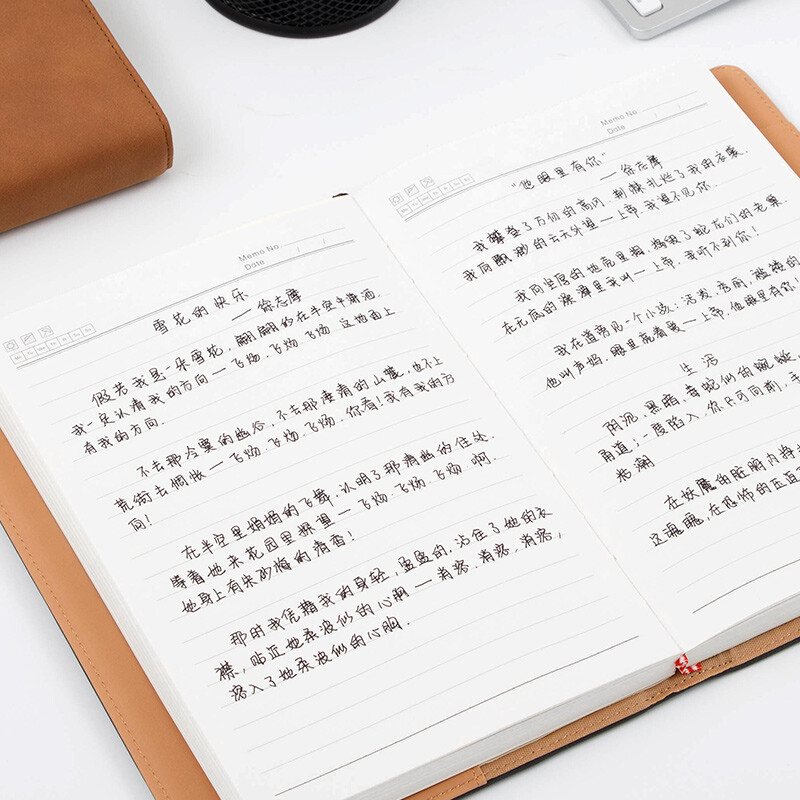 Memo No.
Date / /
雪花的快乐
— 徐志摩
假若我是一朵雪花,翩翩的在半空里潇洒,
我一定认清我的方向 — 飞扬,飞扬,飞扬 这地面上
有我的方向.
不去那冷寞的幽谷,不去那凄清的山麓,也不上
荒街去惆怅 — 飞扬,飞扬,飞扬,你看!我有我的方
向!
在半空里娟娟的飞舞,认明了那清幽的住处,
等着她来花园里探望 — 飞扬,飞扬,飞扬,啊,
她身上有朱砂梅的清香!
那时我凭藉我的身轻,盈盈的,沾住了她的衣
襟,贴近她柔波似的心胸 — 消溶,消溶,消溶,
溶入了她柔波似的心胸.
Memo No.
Date / /
“他眼里有你”
— 徐志摩
我攀登了万仞的高冈,荆棘扎烂了我的衣裳,
我向飘渺的云天外望 — 上帝,我望不见你.
我向坚厚的地壳里掏,捣毁了蛇龙们的老巢,
在无底的深潭里我叫 — 上帝,我听不到你!
我在道旁见一个小孩:活泼,秀丽,褴褛的
他叫声妈,眼里亮着爱 — 上帝,他眼里有你!
生活
阴沉,黑暗,毒蛇似的蜿蜒,
甬道;一度陷入,你只可向前,手
粘潮
在妖魔的脏腑内挣
这魂魄,在恐怖的压迫下